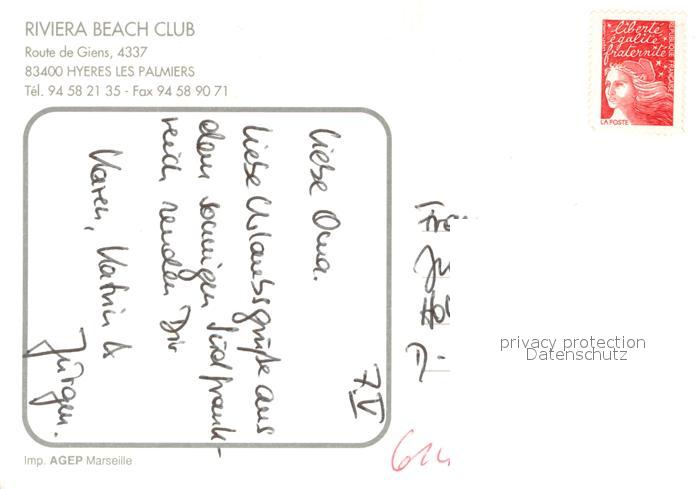 RIVIERA BEACH CLUB
Route de Giens, 4337
83400 HYERES LES PALMIERS
Tél. 94 58 21 35 - Fax 94 58 90 71
liberté
égalité
fraternité
RÉPUBLIQUE FRANÇAISE
LA POSTE
Liebe Oma.
Liebe Urlaubsgrüße aus
dem sonnigen Südfrank-
reich senden Dir
Karen, Katrin &
Jürgen.
privacy protection
Datenschutz
Imp. AGEP Marseille